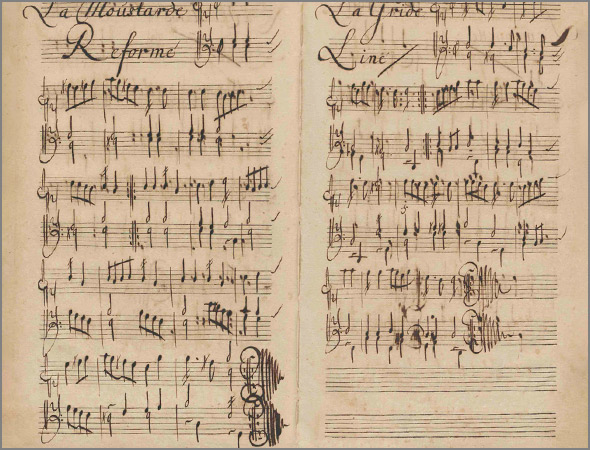 La Moustarde
Reformé
La Gride
Line